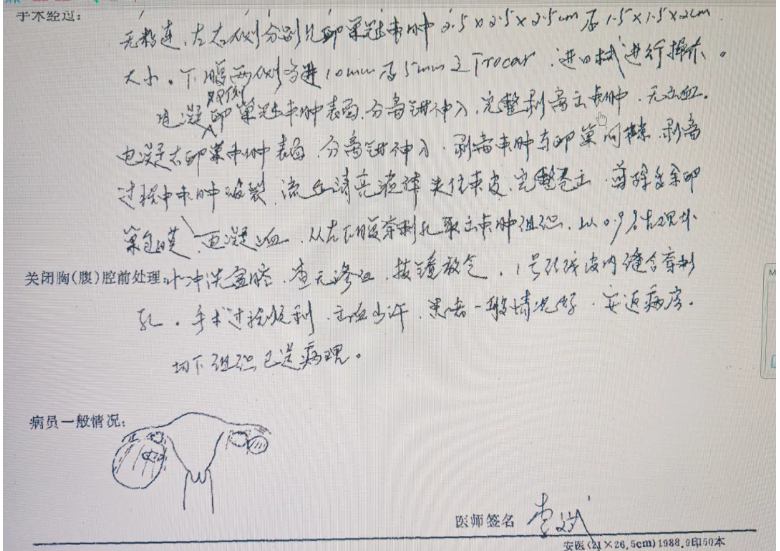 手术经过：
无粘连，左右侧分别见卵巢冠囊肿2.5×2.5×2.5cm及1.5×1.5×2cm
大小。下腹两侧各进10mm及5mm之Trocar，进口械进行操作。
电凝卵巢冠囊肿表面，分离钳伸入，完整剥离出囊肿，无出血。
电凝右卵巢囊肿表面，分离钳伸入，剥离囊肿与卵巢间隙，剥离
过程中囊肿破裂，流出清亮液体，夹住囊皮，完整剥出，剪除多余卵
巢包膜，电凝止血，从左下腹穿刺孔取出囊肿组织，以0.9%
关闭胸(腹)腔前处理：冲洗盆腔，查无渗血，拔镜放气，1号丝线皮内缝合穿刺
孔。手术过程顺利，出血少许，患者一般情况好，安返病房。
切下组织已送病理。
病员一般情况：
医师签名 李斌
安医(21×26.5cm)1988.9印50本